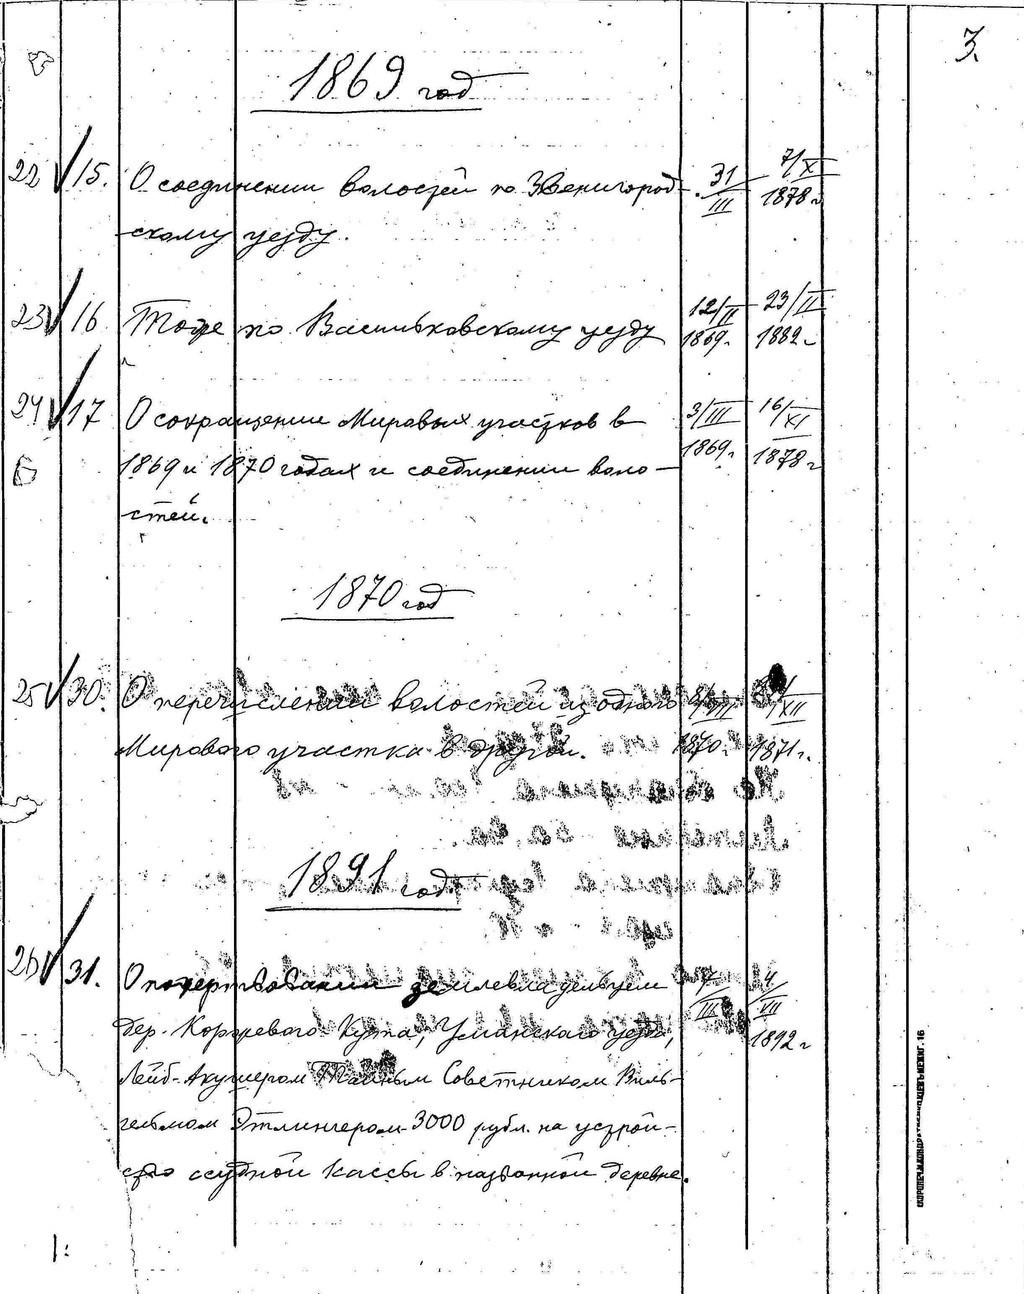 3.
1869 год
22 15. О соединении волостей по Звенигород- 31/III 7/XI 1878 г
скому уезду.
23 16 Тоже по Васильковскому уезду 12/II 1869 г. 23/II 1882 г
24 17 О сокращении Мировых участков в 3/III 1869 г. 16/XI 1878 г
1869 и 1870 годах и соединении воло-
стей.
1870 год
25 30. О перечислении волостей из одного /XII
Мирового участка в другой. 1870 г. 1871 г.
1891 год
26 31. О пожертвовании землевладельцем 7/III 4/VII 1892 г
дер. Коржевого Кута, Уманского уезда,
Лейб-Акушером Тайным Советником Виль-
гельмом Этлингером 3000 рубл. на устрой-
ство ссудной кассы в названной деревне.